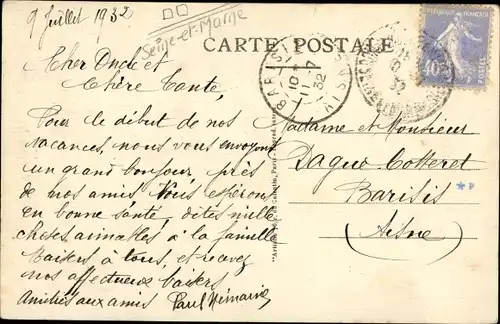 9 Juillet 1932
Seine-et-Marne
CARTE POSTALE
Cher Oncle et
Chère Tante,
Pour le début de nos
vacances, nous vous envoyons
un grand bonjour, près
de nos amis. Vous espérons
en bonne santé, dites mille
choses aimables à la famille
Baisers à tous, et recevez
nos affectueux baisers
Amitiés aux amis Paul
BARISIS
10
11-7
32
40
Madame et Monsieur
Dague Cotteret
Barisis
(Aisne)
*P